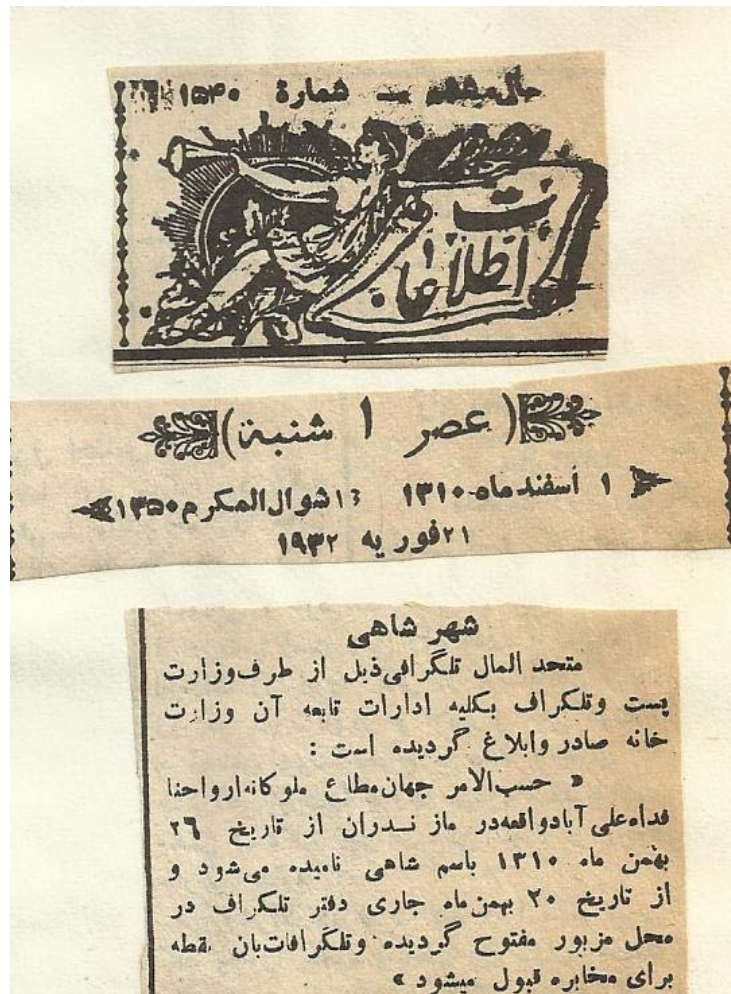 سال ششم — شمارهٔ ۱۵۴۰
اطلاعات
(عصر ۱ شنبه)
۱ اسفندماه ۱۳۱۰ شوال‌المکرم ۱۳۵۰
۲۱ فوریه ۱۹۳۲
شهر شاهی
متحد المال تلگرافی ذیل از طرف وزارت
پست وتلگراف بکلیه ادارات تابعه آن وزارت
خانه صادر وابلاغ گردیده است :
« حسب‌الامر جهان‌مطاع ملوکانه ارواحنا
فداه علی آباد واقعه در ماز نــدران از تاریخ ۲۶
بهمن ماه ۱۳۱۰ باسم شاهی نامیده می‌شود و
از تاریخ ۲۰ بهمن ماه جاری دفتر تلگراف در
محل مزبور مفتوح گردیده وتلگرافات بان نقطه
برای مخابره قبول میشود »